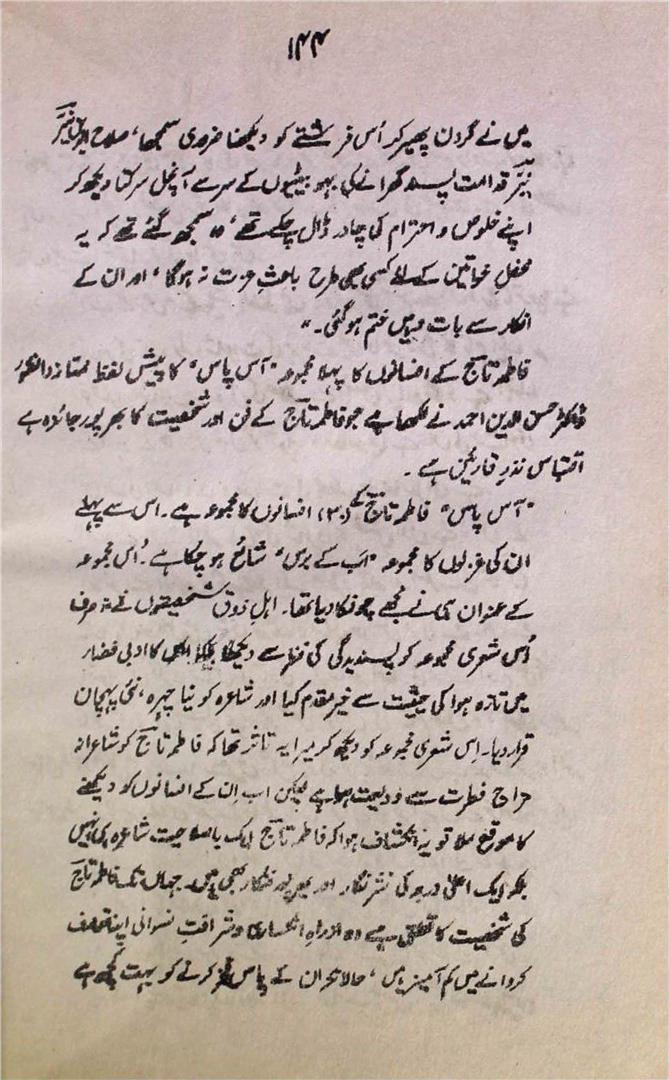 ۱۴۴
میں نے گردن پھیر کر اُس فرشتے کو دیکھنا ضروری سمجھا، صلاح الدین نیّر
نیّر قدامت پسند گھرانے کی بہو بیٹیوں کے سر سے آنچل سرکتا دیکھ کر
اپنے خلوص و احترام کی چادر ڈال چکے تھے، وہ سمجھ گئے تھے کہ یہ
محفل خواتین کے لئے کسی بھی طرح باعثِ عزت نہ ہوگا، اور ان کے
انکار سے بات وہیں ختم ہوگئی۔"
فاطمہ تاج کے افسانوں کا پہلا مجموعہ "آس پاس" کا پیش لفظ ممتاز دانشور
ڈاکٹر حسن الدین احمد نے لکھا ہے جو فاطمہ تاج کے فن اور شخصیت کا بھرپور جائزہ ہے
اقتباس نذرِ قارئین ہے ۔
"آس پاس" فاطمہ تاج کے (۳۰) افسانوں کا مجموعہ ہے۔ اس سے پہلے
ان کی غزلوں کا مجموعہ "اب کے برس" شائع ہو چکا ہے۔ اُس مجموعہ
کے عنوان ہی نے مجھے چونکا دیا تھا۔ اہلِ ذوق شخصیتوں نے نہ صرف
اُس شعری مجموعہ کو پسندیدگی کی نظر سے دیکھا بلکہ اس کا ادبی فضاء
میں تازہ ہوا کی حیثیت سے خیر مقدم کیا اور شاعرہ کو نیا چہرہ، نئی پہچان
قرار دیا۔ اِس شعری مجموعہ کو دیکھ کر میرا یہ تاثر تھا کہ فاطمہ تاج کو شاعرانہ
مزاج فطرت سے ودیعت ہوا ہے لیکن اب اِن کے افسانوں کو دیکھنے
کا موقع ملا تو یہ انکشاف ہوا کہ فاطمہ تاج ایک باصلاحیت شاعرہ ہی نہیں
بلکہ ایک اعلیٰ درجہ کی نثر نگار اور بھرپور فنکار بھی ہیں۔ جہاں تک فاطمہ تاج
کی شخصیت کا تعلق ہے وہ ازراہِ انکساری و شرافتِ نسوانی اپنا تعارف
کروانے میں کم آمیز ہیں، حالانکہ ان کے پاس فخر کرنے کو بہت کچھ ہے